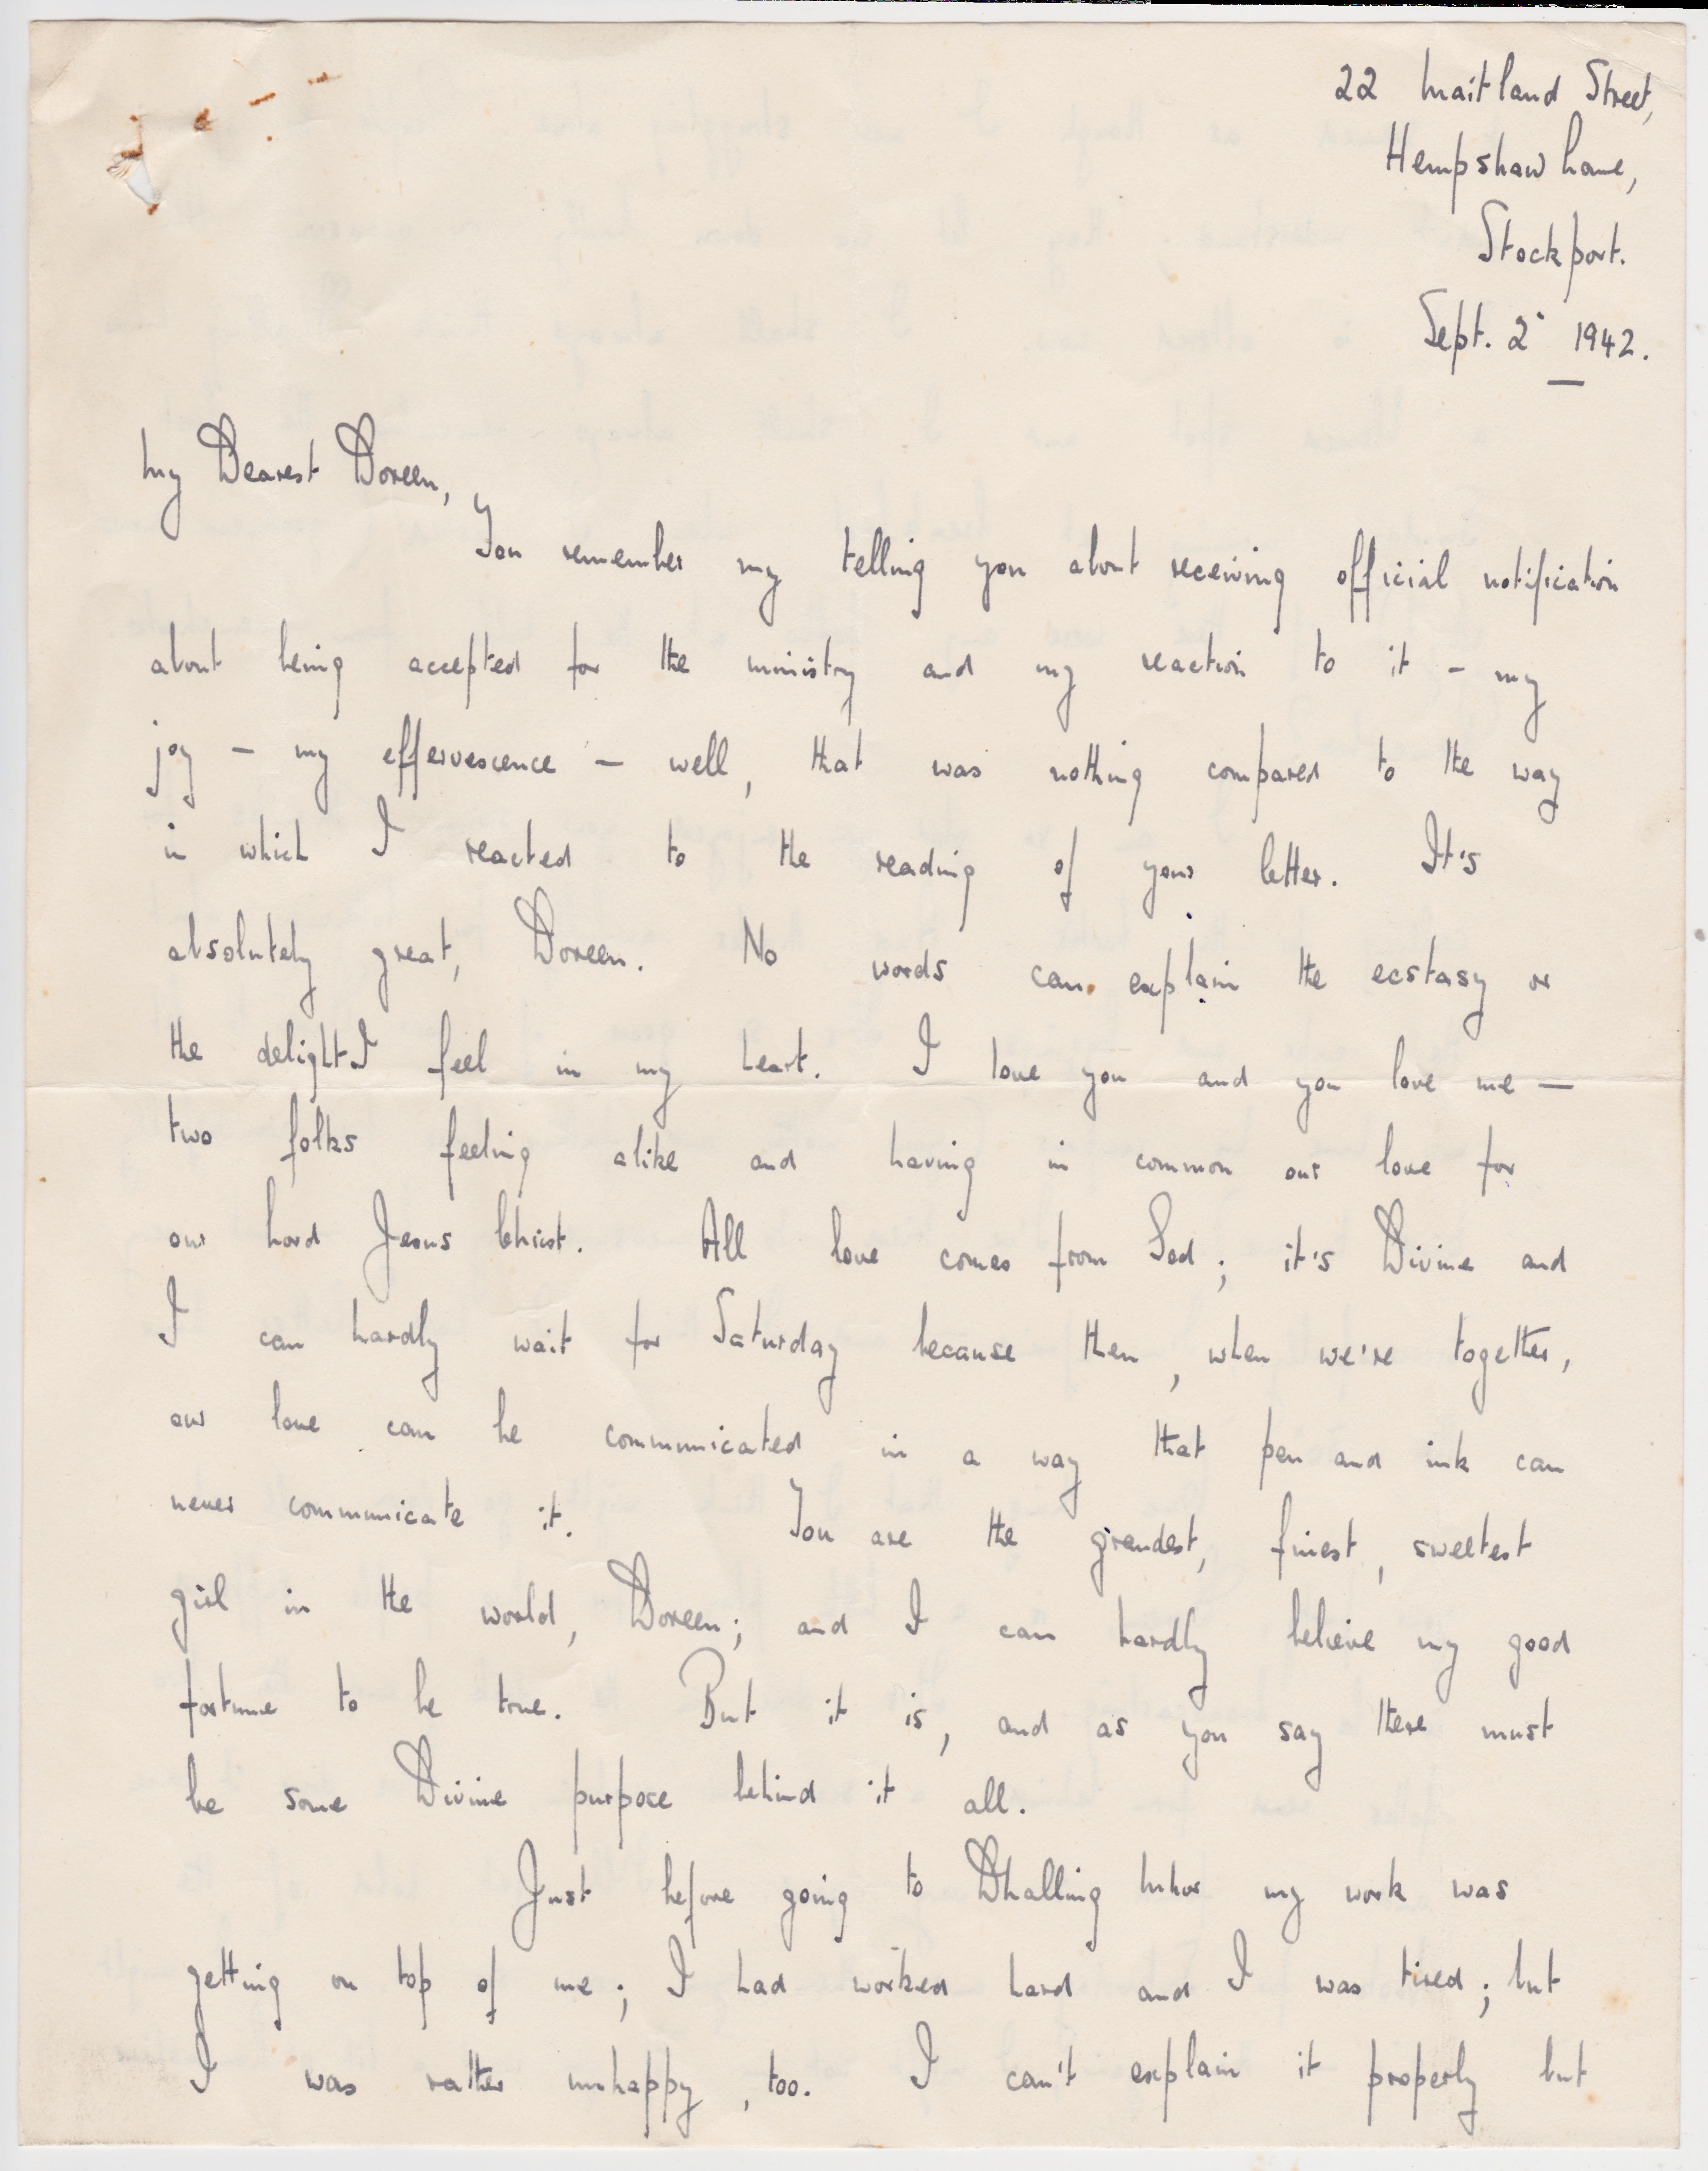 22 Maitland Street,
Hempshaw Lane,
Stockport.
Sept. 2 1942.
My Dearest Doreen,
You remember my telling you about receiving official notification
about being accepted for the ministry and my reaction to it - my
joy - my effervescence - well, that was nothing compared to the way
in which I reacted to the reading of your letter. It's
absolutely great, Doreen. No words can explain the ecstasy or
the delight I feel in my heart. I love you and you love me -
two folks feeling alike and having in common our love for
our Lord Jesus Christ. All love comes from God; it's Divine and
I can hardly wait for Saturday because then, when we're together,
our love can be communicated in a way that pen and ink can
never communicate it. You are the grandest, finest, sweetest
girl in the world, Doreen; and I can hardly believe my good
fortune to be true. But it is, and as you say there must
be some Divine purpose behind it all.
Just before going to Dhalling Mhor my work was
getting on top of me; I had worked hard and I was tired; but
I was rather unhappy, too. I can't explain it properly but